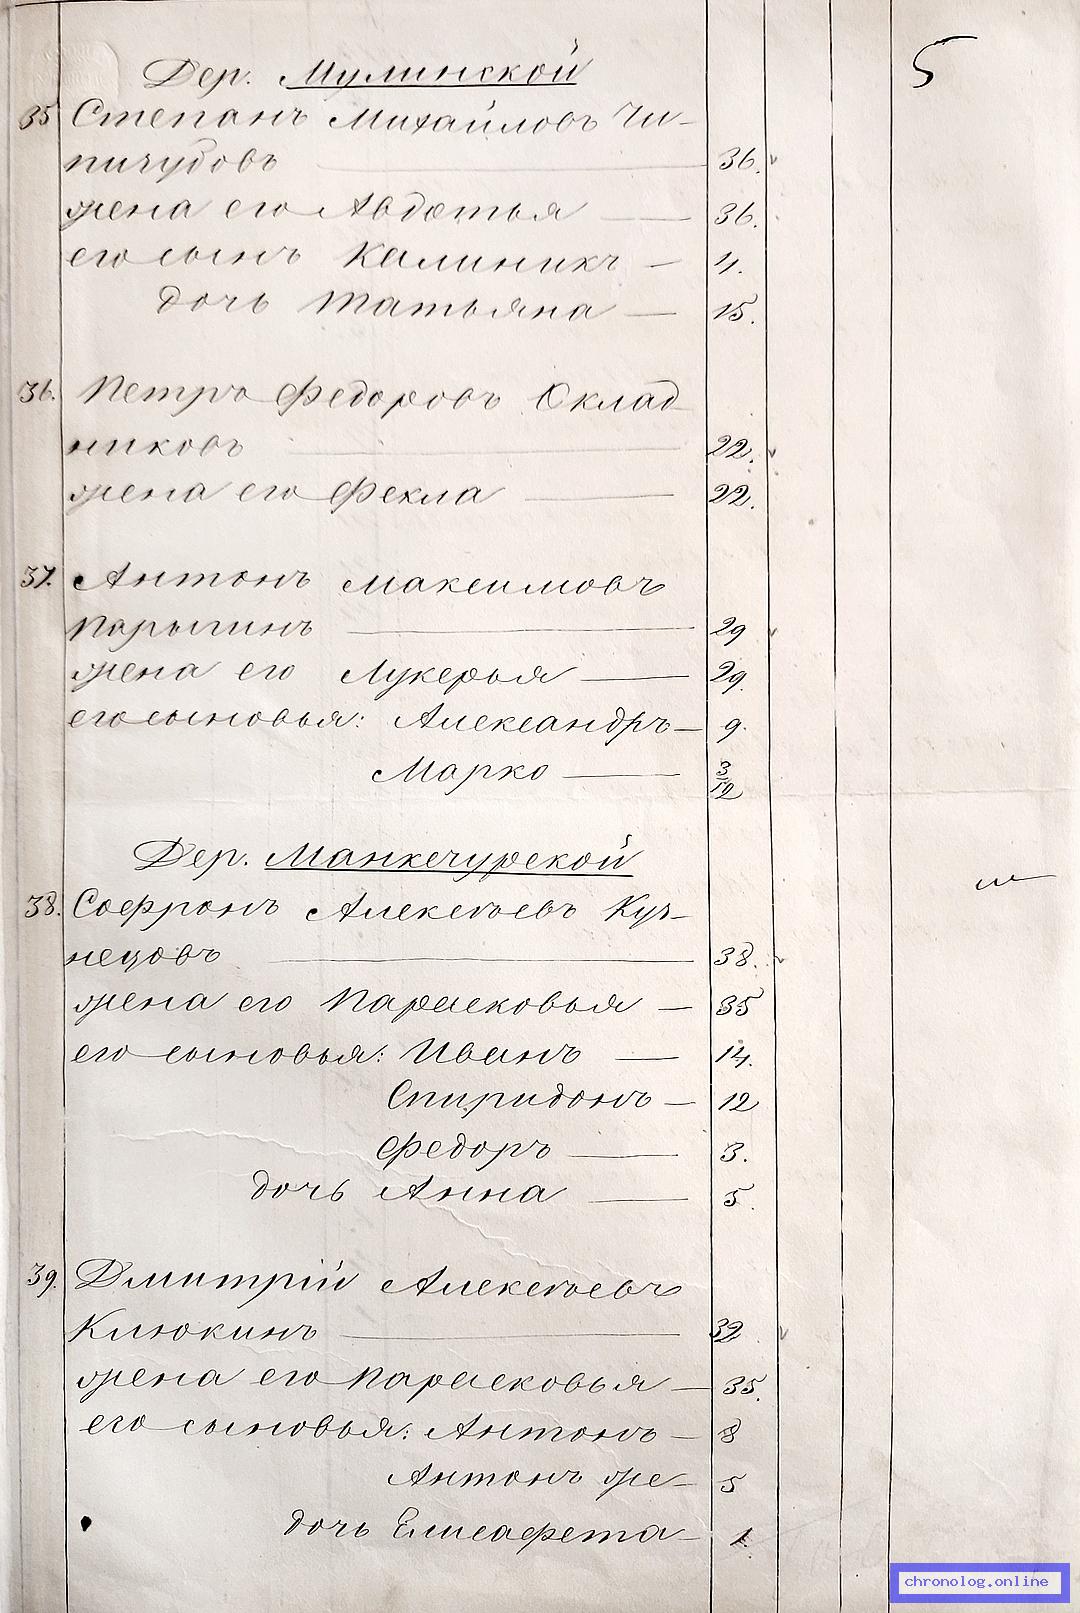 5
Дер. Мулинской
35 Степанъ Михайловъ Чи-
пичубовъ 36.
жена его Авдотья — 36.
его сынъ Калиникъ — 4.
дочь Татьяна — 15.
36. Петръ Федоровъ Оклад-
никовъ 22.
жена его Фекла — 22.
37. Антонъ Максимовъ
Парыгинъ — 29
жена его Лукерья — 29.
его сыновья: Александръ — 9.
Марко — 3/12
Дер. Манкечурской
38. Софронъ Алексѣевъ Куз-
нецовъ — 38.
жена его Парасковья — 35
его сыновья: Иванъ — 14.
Спиридонъ — 12
Федоръ — 3.
дочь Анна — 5.
39. Дмитрій Алексѣевъ
Клюкинъ — 32
жена его Парасковья — 35.
его сыновья: Антонъ — 8
Антонъ же — 5
дочь Елисафета — 1.
chronolog.online